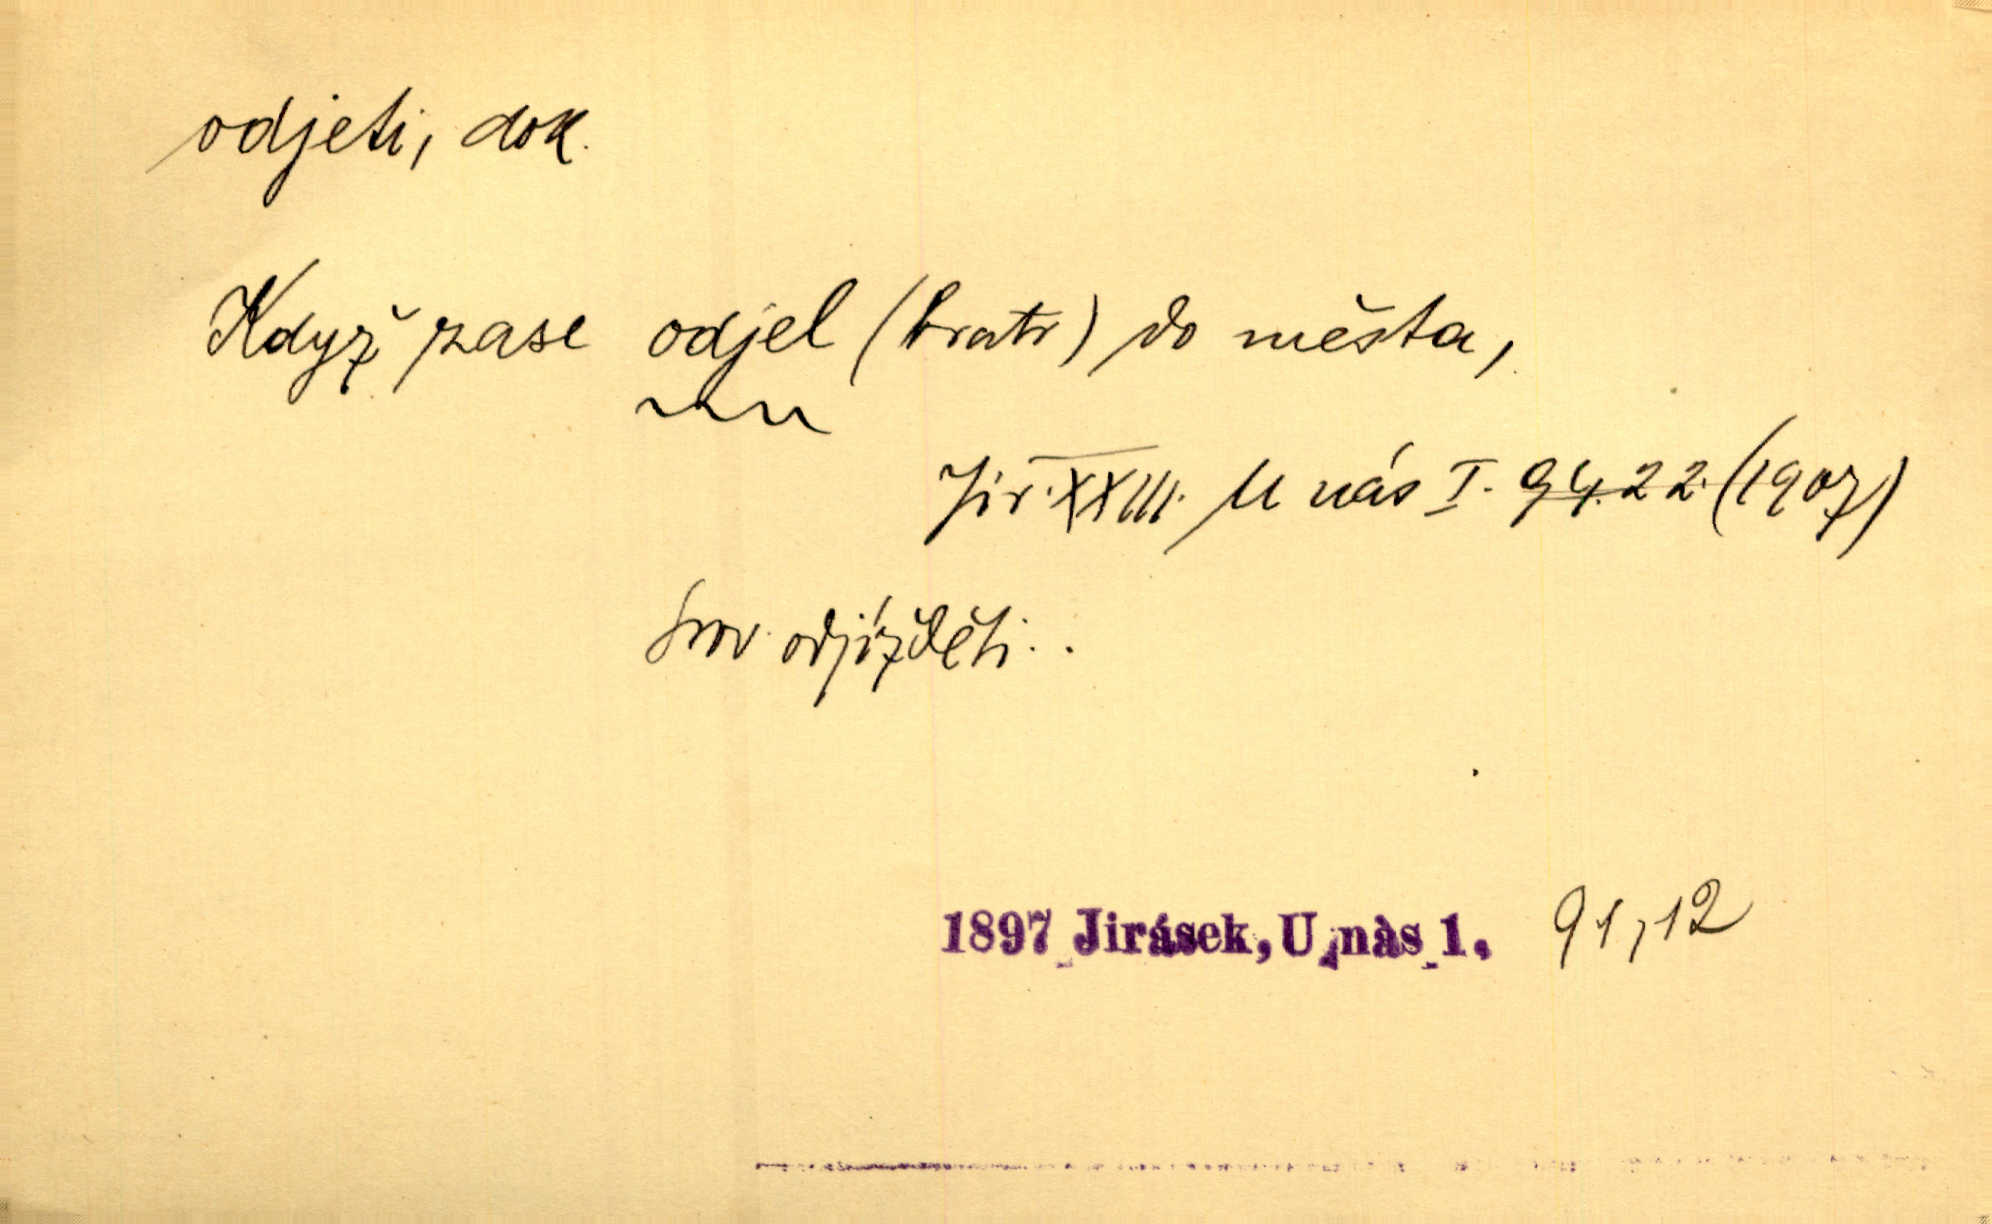 odjeti, dok.
Když zase odjel (bratr) do města,
Jir. XXIII. U nás I. 94.22. (1907)
Srov. odjížděti..
1897 Jirásek, U nàs 1, 91,12